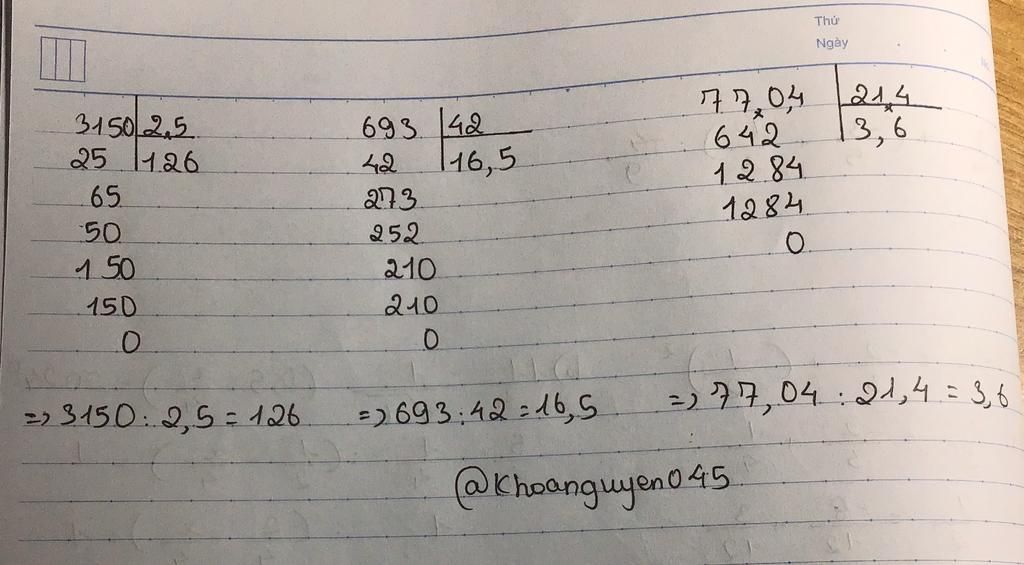 Thứ
Ngày
3150 2,5
25 126
65
50
150
150
0
693 42
42 16,5
273
252
210
210
0
77,04 21,4
642 3,6
1284
1284
0
=> 3150 : 2,5 = 126
=> 693 : 42 = 16,5
=> 77,04 : 21,4 = 3,6
@Khoanguyen045